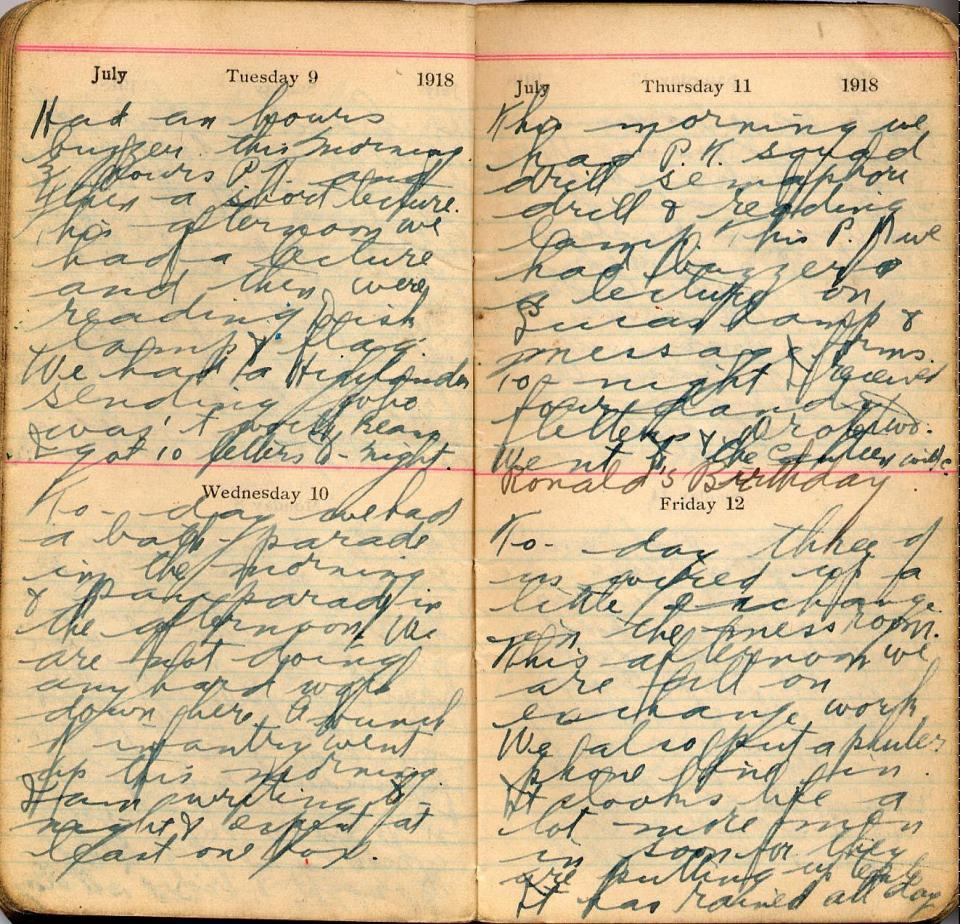 July Tuesday 9 1918
Had an hours
buzzer this morning
¾ hours P.T. and
then a short lecture.
This afternoon we
had a lecture
and then were
reading Disk
lamp & flag.
We had a Highlander
sending who
was't
I got 10 letters to-night.
Wednesday 10
To-day we had
a bath parade
in the morning
& pay parade in
the afternoon. We
are not doing
any hard work
down here. A bunch
of infantry went
up this morning.
I am writing to
night & expect at
least one box.
July Thursday 11 1918
This morning we
had P.T. squad
drill semaphore
drill & reading
lamp. This P.M. we
had buzzer
a lecture on
Lucas lamp &
message forms.
To night I received
four
letters & wrote two.
Went to the Canteen
Ronald's Birthday
Friday 12
To-day three of
us wired up a
little exchange
in the mess room.
This afternoon we
are still on
exchange work
We also put a
phone line in.
It looks like a
lot more men
in soon for they
are putting up
It has rained all day